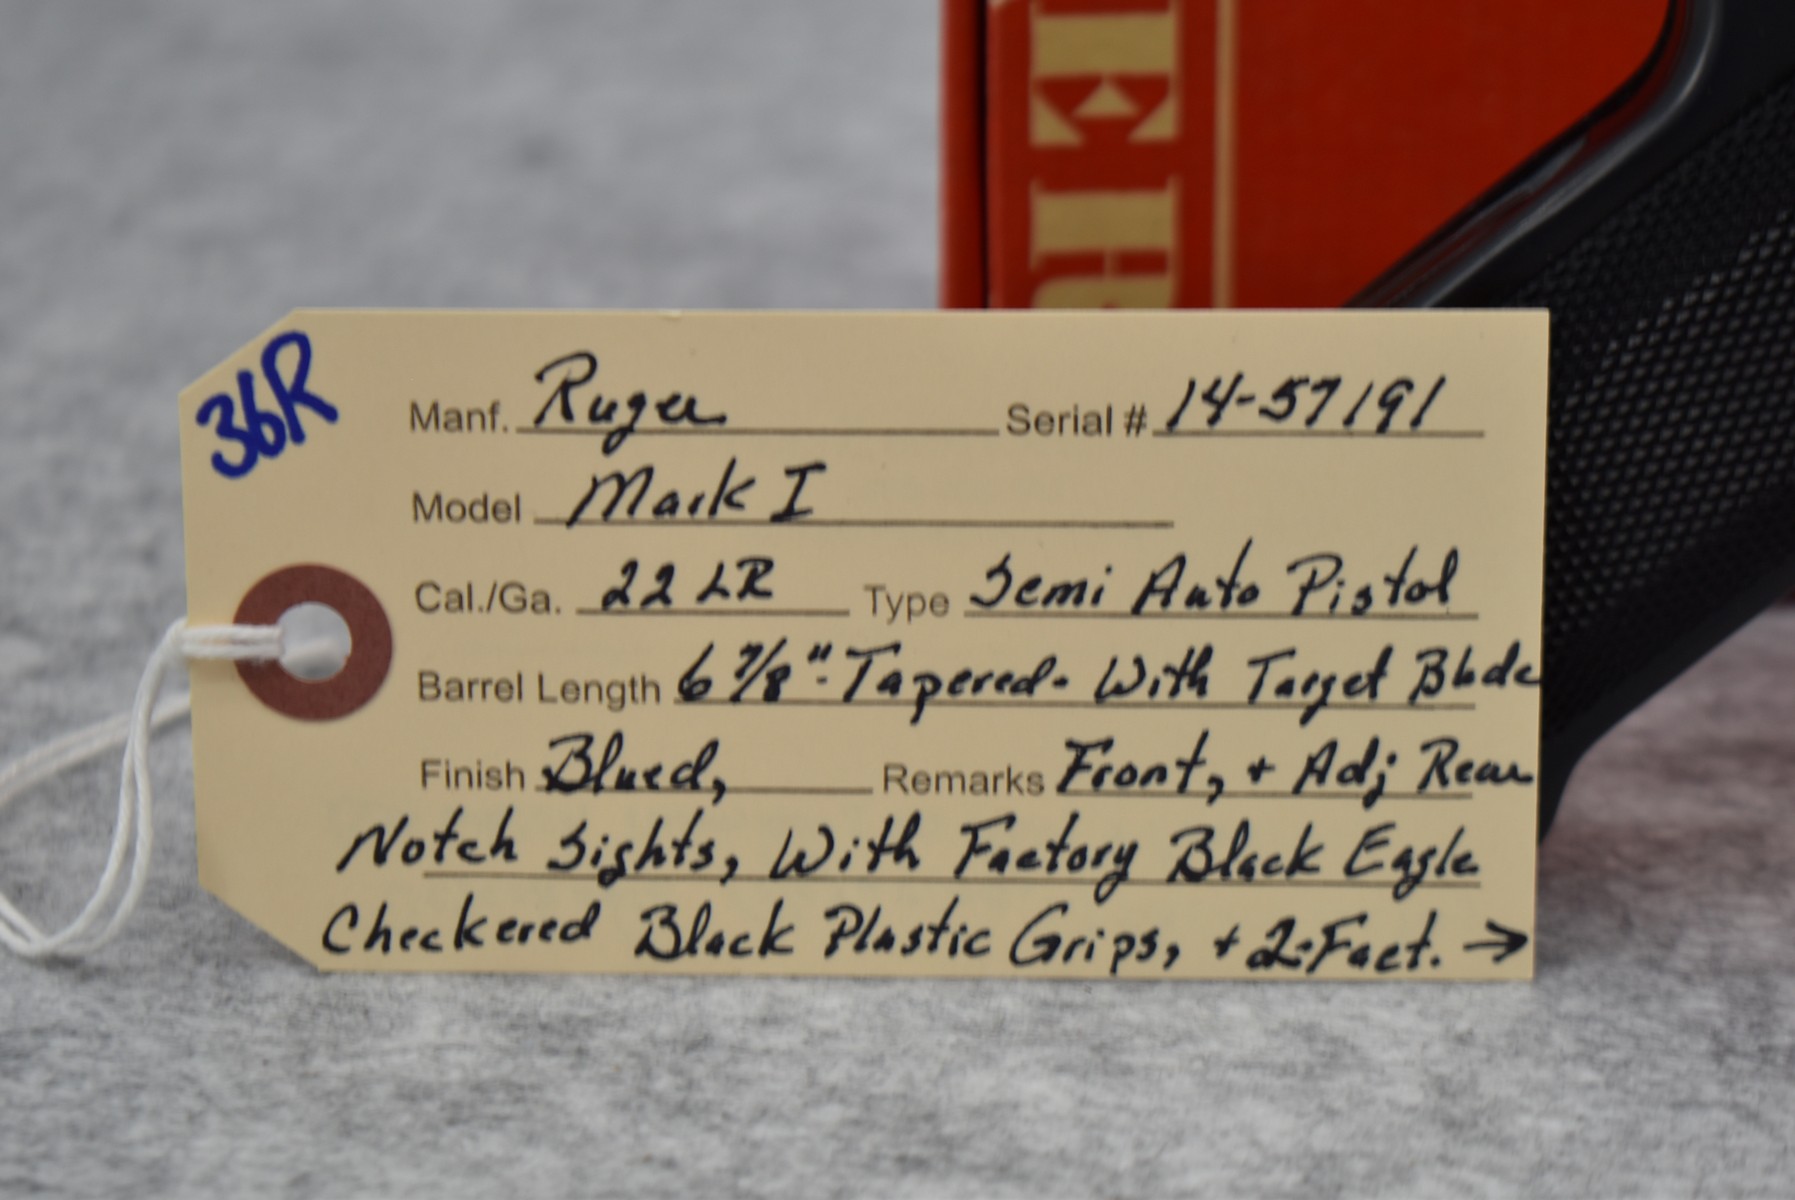 36R
Manf. Ruger Serial # 14-57191
Model Mark I
Cal./Ga. 22 LR Type Semi Auto Pistol
Barrel Length 6 7/8"-Tapered- With Target Blade
Finish Blued, Remarks Front, + Adj Rear
Notch Sights, With Factory Black Eagle
Checkered Black Plastic Grips, + 2-Fact. →
ER